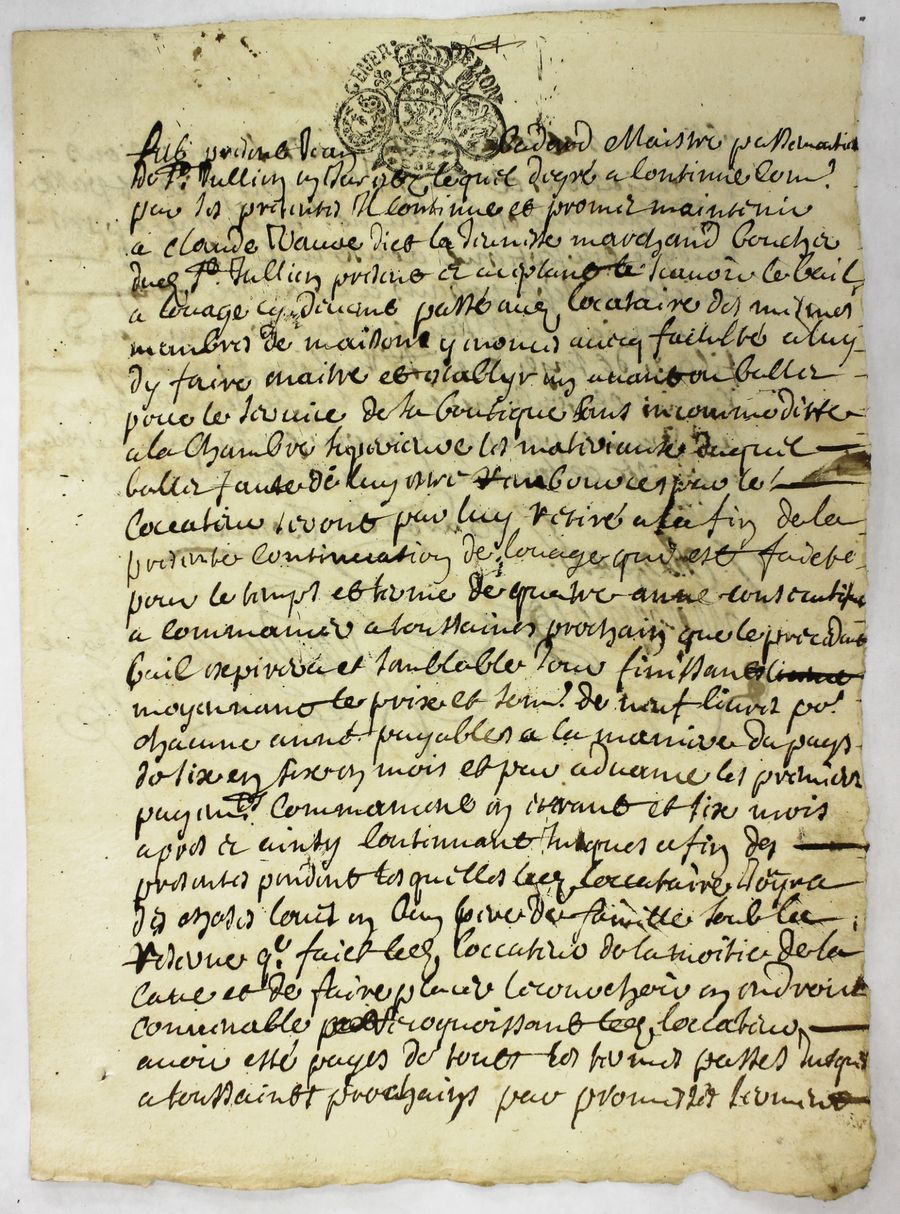 GENER DE LION
fut present Jean Badard Maistre passementier
de St. Jullien en Jarretz lequel de gré a continué com.^e
par les presentes Il continue et promet maintenir
a claude Vauve dict la Jeunesse marchand boucher
dud. St. Jullien present et acceptant scavoir le bail
a louage cy devant passé aud. locataire des mesmes
membres de maison y avec faculté a luy
d'y faire maitre et establyr un avant ou ballet
pour le service de sa boutique sans incommodisse
a la chambre superieure les materiaux duquel
ballet faute de luy estre rembources par led.
Loccateur seront par luy retiré a la fin de la
presente continuation de louage qui est faicte
pour le temps et terme de quatre anné consecutifve
a commancer a toussaincts prochain que le precedant
bail expirera et semblable Jour finissant
moyennant le prix et som.^e de neuf livres po.^r
chacune anné payables a la maniere du pays
de six en six mois et par advance les premier
payem.^t commancant en entrant et six mois
apres et ainsy continuant Jusques a fin des
presentes pendant lesquelles led. loccataire Joyra
des choses louees en bon pere de famille soub la
reserve q.^e faict led. loccateur de la moitié de la
cave et de faire placer en endroit
convenable recognoissant led. loccateur
avoir esté payes de touts les termes passes Jusques
a toussaincts prochains par promesses